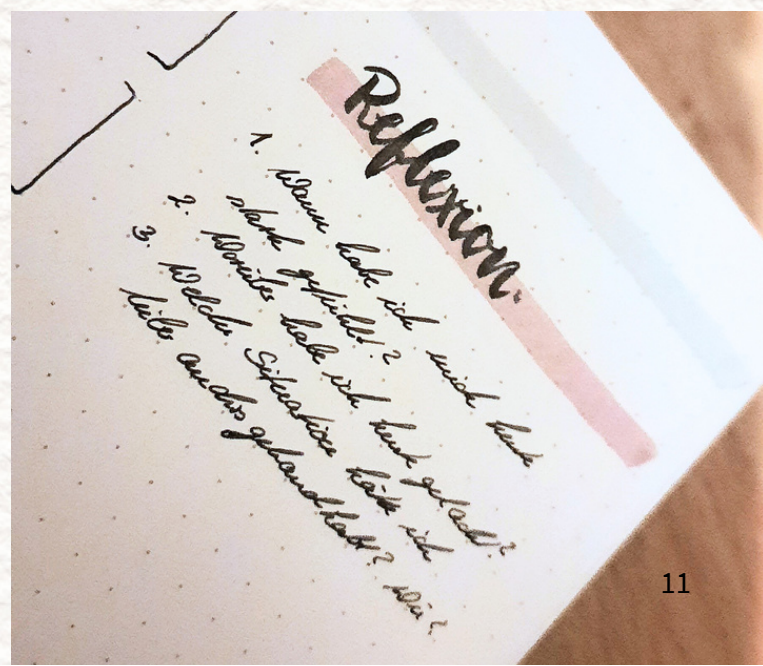 Reflexion.
1. Wann habe ich mich heute
stark gefühlt?
2. Worüber habe ich heute gelacht?
3. Welche Situation hätte ich
lieber anders gehandhabt? Wie?
11